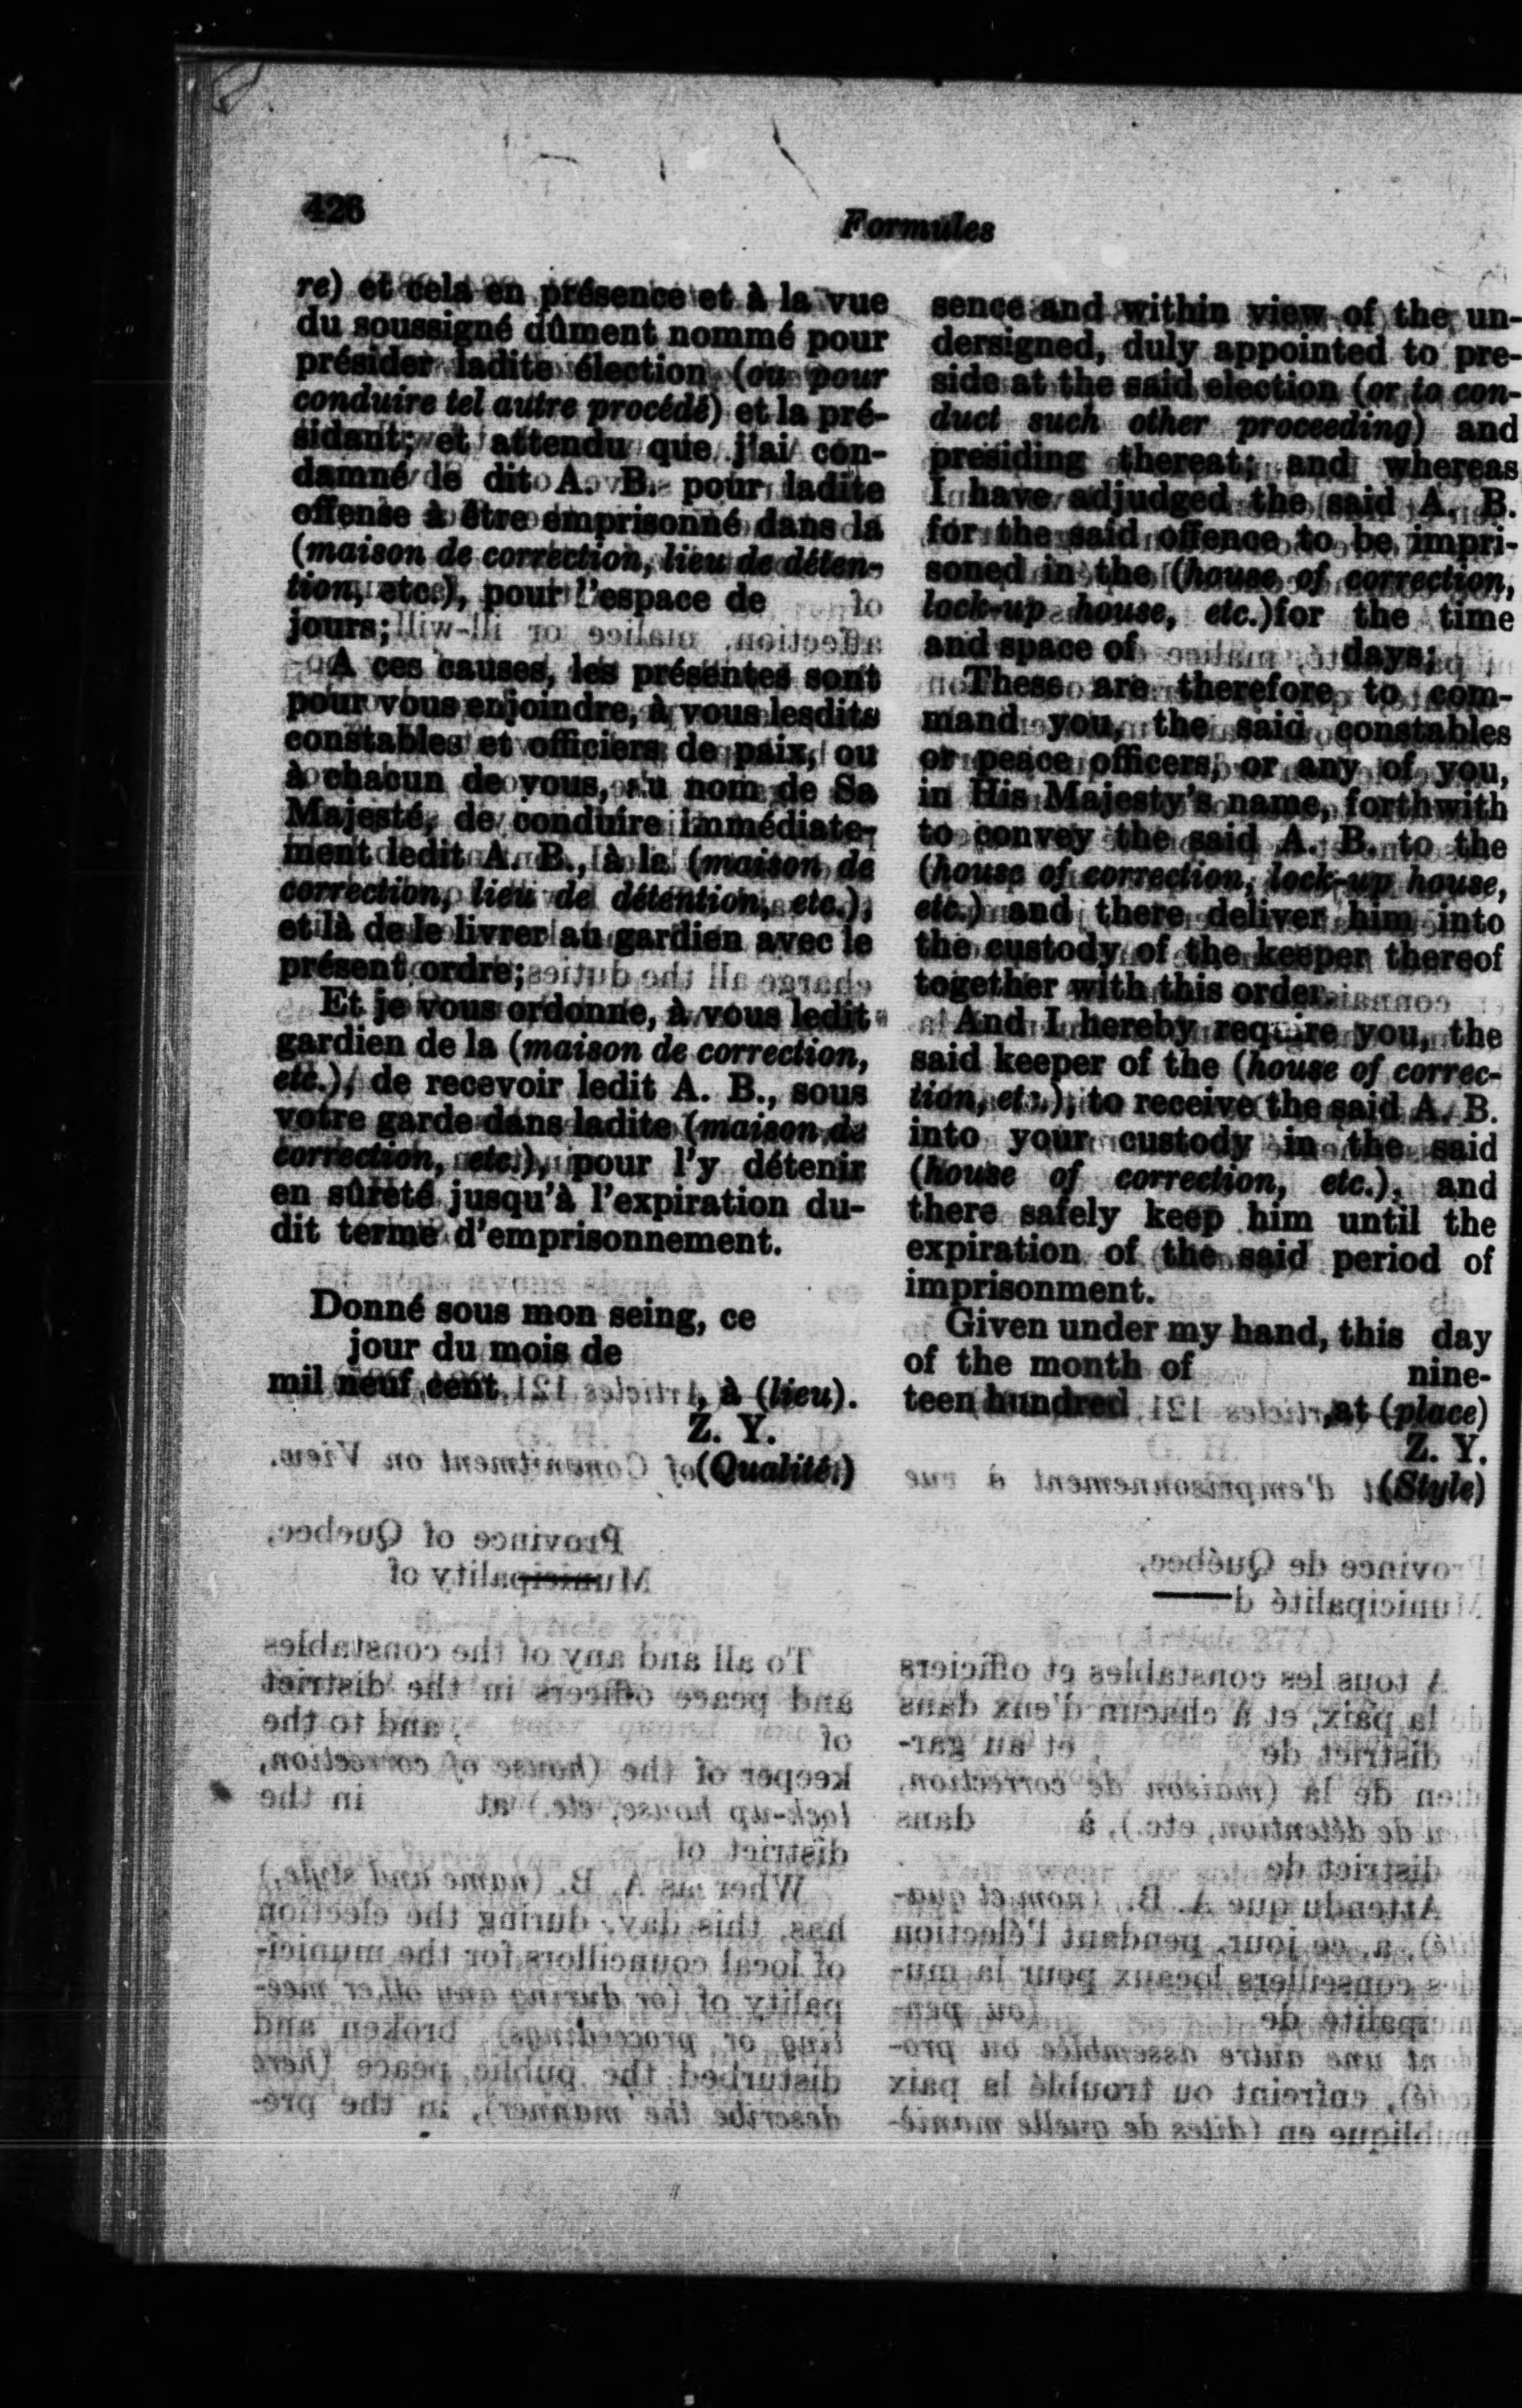 426
Formules
re) et cela en présence et à la vue
du soussigné dûment nommé pour
présider ladite élection (ou pour
conduire tel autre procédé) et la pré-
sidant; et attendu que j'ai con-
damné le dit A. B. pour ladite
offense à être emprisonné dans la
(maison de correction, lieu de déten-
tion, etc.), pour l'espace de
jours;
A ces causes, les présentes sont
pour vous enjoindre, à vous lesdits
constables et officiers de paix, ou
à chacun de vous, au nom de Sa
Majesté, de conduire immédiate-
ment ledit A. B., à la (maison de
correction, lieu de détention, etc.),
et là de le livrer au gardien avec le
présent ordre;
Et je vous ordonne, à vous ledit
gardien de la (maison de correction,
etc.), de recevoir ledit A. B., sous
votre garde dans ladite (maison de
correction, etc.), pour l'y détenir
en sûreté jusqu'à l'expiration du-
dit terme d'emprisonnement.
Donné sous mon seing, ce
jour du mois de
mil neuf cent , à (lieu).
Z. Y.
(Qualité.)
sence and within view of the un-
dersigned, duly appointed to pre-
side at the said election (or to con-
duct such other proceeding) and
presiding thereat; and whereas
I have adjudged the said A. B.
for the said offence to be impri-
soned in the (house of correction,
lock-up house, etc.) for the time
and space of days;
These are therefore to com-
mand you, the said constables
or peace officers, or any of you,
in His Majesty's name, forthwith
to convey the said A. B. to the
(house of correction, lock-up house,
etc.) and there deliver him into
the custody of the keeper thereof
together with this order.
And I hereby require you, the
said keeper of the (house of correc-
tion, etc.), to receive the said A. B.
into your custody in the said
(house of correction, etc.), and
there safely keep him until the
expiration of the said period of
imprisonment.
Given under my hand, this day
of the month of nine-
teen hundred ,at (place)
Z. Y.
(Style)